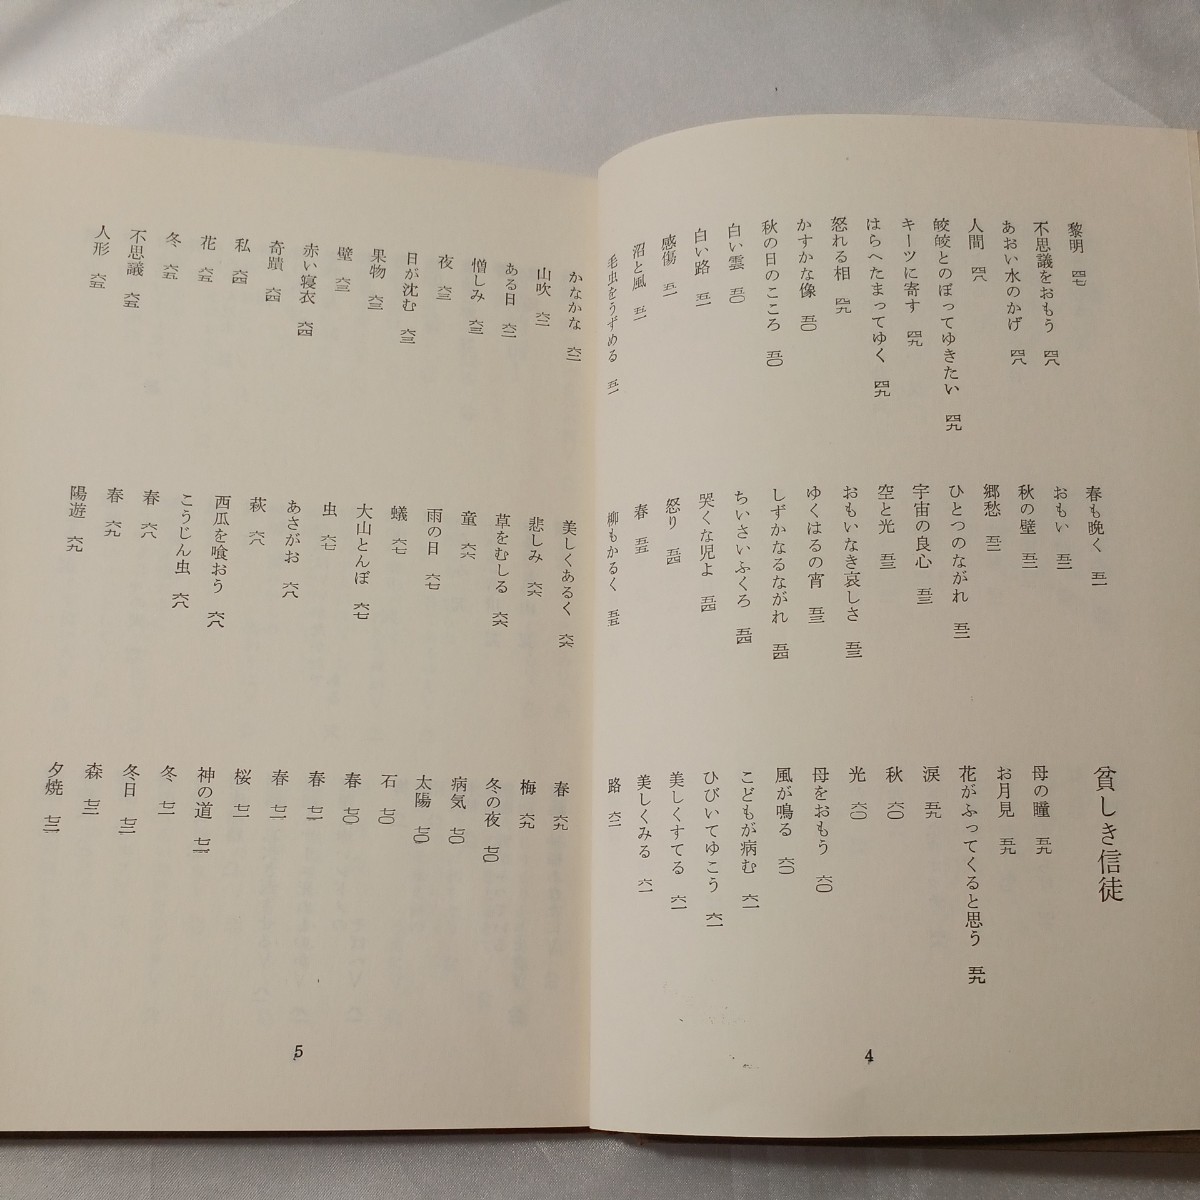 黎明 四七
不思議をおもう 四八
あおい水のかげ 四八
人間 四八
皎皎とのぼってゆきたい 四九
キーツに寄す 四九
はらへたまってゆく 四九
怒れる相 四九
かすかな像 五〇
秋の日のこころ 五〇
白い雲 五〇
白い路 五一
感傷 五一
沼と風 五一
毛虫をうずめる 五一
春も晩く 五一
おもい 五二
秋の壁 五二
郷愁 五二
ひとつのながれ 五二
宇宙の良心 五三
空と光 五三
おもいなき哀しさ 五三
ゆくはるの宵 五三
しずかなるながれ 五四
ちいさいふくろ 五四
哭くな児よ 五四
怒り 五四
春 五五
柳もかるく 五五
貧しき信徒
母の瞳 五九
お月見 五九
花がふってくると思う 五九
涙 五九
秋 六〇
光 六〇
母をおもう 六〇
風が鳴る 六〇
こどもが病む 六一
ひびいてゆこう 六一
美しくすてる 六一
美しくみる 六一
路 六二
4
かなかな 六二
山吹 六二
ある日 六二
憎しみ 六三
夜 六三
日が沈む 六三
果物 六三
壁 六三
赤い寝衣 六四
奇蹟 六四
私 六四
花 六五
冬 六五
不思議 六五
人形 六五
美しくあるく 六六
悲しみ 六六
草をむしる 六六
童 六六
雨の日 六七
蟻 六七
大山とんぼ 六七
虫 六七
あさがお 六八
萩 六八
西瓜を喰おう 六八
こうじん虫 六八
春 六八
春 六九
陽遊 六九
春 六九
梅 六九
冬の夜 七〇
病気 七〇
太陽 七〇
石 七〇
春 七〇
春 七一
春 七一
桜 七一
神の道 七一
冬 七一
冬日 七二
森 七二
夕焼 七二
5